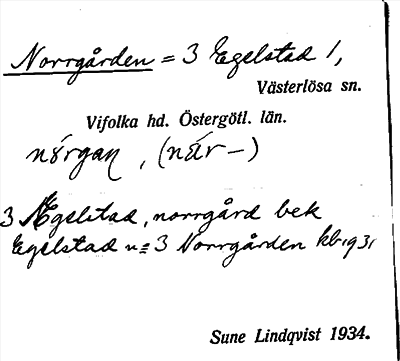 Norrgården = 3 Egelstad 1,
Västerlösa sn.
Vifolka hd. Östergötl. län.
nórgaɳ, (när–)
3 Ægelstad, norrgård bek
Egelstad n=3 Norrgården kb 1931
Sune Lindqvist 1934.